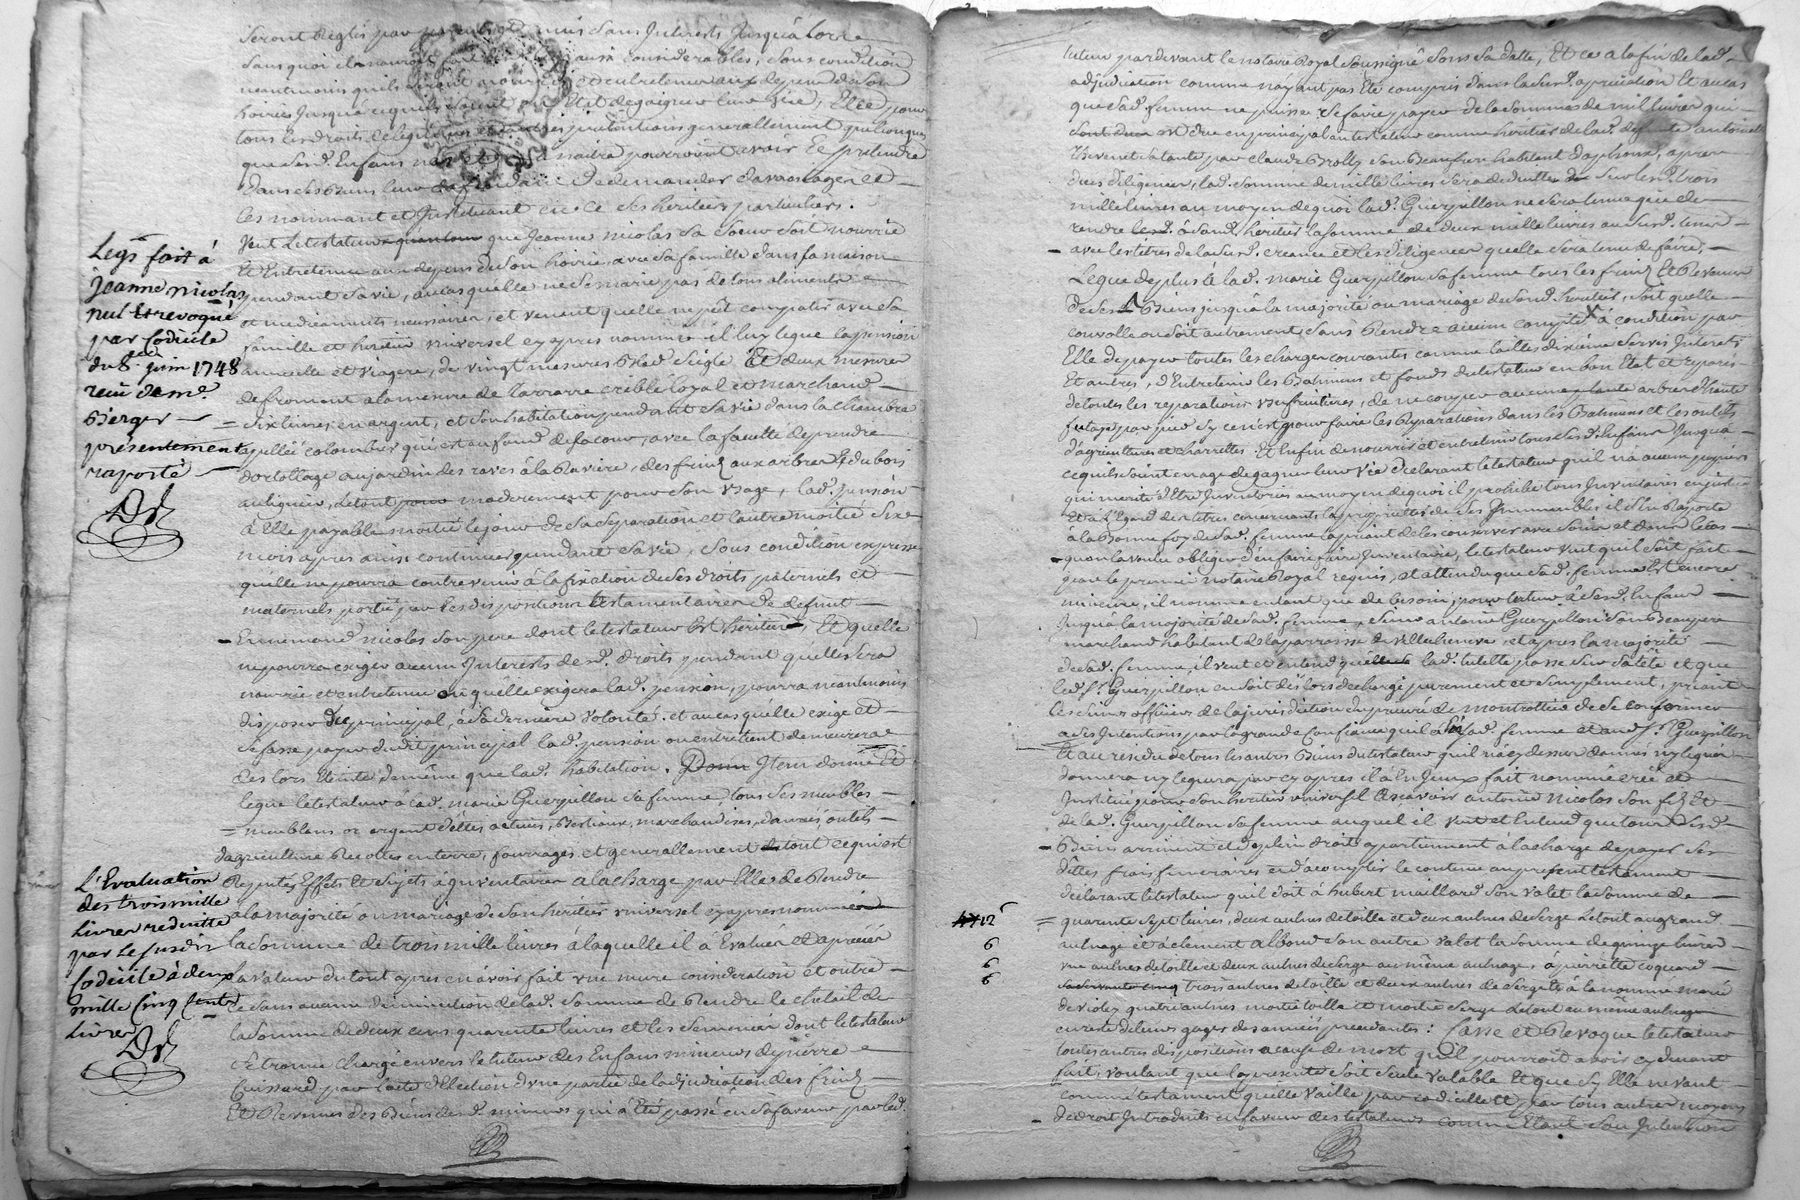 seront Reglés par
sans quoi il n'auroit fait aussi considerables, sous condition
neantmoins qu'ils seront nourris et entretenus aux depens de son
hoirie jusqu'à ce qu'ils soient en Etat de gaigner leur vie, Et ce pour
tous les droits de legitimes et autres pretentions generallement quelconques
que sesd. Enfans nés et à naitre pourroient avoir Et pretendre
dans ses Biens leur deffendant de demander davantage et
les nommant et Instituant en ce ses heritiers particuliers.
Veut Le testateur que Jeanne Nicolas sa soeur soit nourrie
Et Entretenue aux depens de son hoirie avec sa famille dans sa maison
pendant sa vie, au cas qu'elle ne se marie pas de tous aliments
et medicaments necessaires, et venant qu'elle ne put compatir avec sa
famille et heritier universel cy apres nommé il luy legue la pension
annuelle et viagere, de vingt mesures Bled seigle Et deux mesures
de froment a la mesure de Tararre criblé loyal et marchand
six livres en argent, et son habitation pendant sa vie dans la chambre
appellée colombier qui est au fond de sa cour, avec la faculté de prendre
d'ortollage au jardin des raves à la Raviere, des fruits aux arbres Et du bois
au ligneir, le tout moderement pour son usage, lad. pension
à Elle payable moitié le jour de sa separation et l'autre moitié six
mois apres ainsi continuer pendant sa vie, sous condition expresse
qu'elle ne pourra contrevenir à la fixation de ses droits paternels et
maternels portée par les dispositions testamentaires de deffunt
Ennemond Nicolas son pere dont le testateur Est heritier, Et qu'elle
ne pourra exiger aucun Interests de sd. droits pendant qu'elle sera
nourrie et entretenue ou qu'elle exigera lad. pension, pourra neantmoins
disposer du principal à sa derniere volonté. et au cas qu'elle exige et
se fasse payer dudit principal lad. pension ou entretient demeurera
des lors Eteinte de même que lad. habitation. Item donne Et
legue le testateur à lad. marie Guerpillon sa femme, tous ses meubles
meublans or argent dettes actives, Bestiaux, marchandises, danrées, outils
d'agriculture Recoltes en terre, fourrages et generallement tout ce qui est
Reputés Effets Et sujets à inventaires a la charge par Elle de Rendre
a la majorité ou mariage de son heritier universel cy apres nommé
la somme de trois mille livres à laquelle il à Evalué Et apretié
la valeur du tout apres en avoir fait une mure consideration et outre
ce sans aucune diminution de lad. somme de Rendre le cheptail de
la somme de deux cens quarente livres et les semences dont le testateur
se trouve chargé envers le tuteur des Enfans mineurs de pierre
Cuissard par l'acte d'Election d'une partie de l'adjudication des fruits
Et Revenus des Biens desd. mineurs qui à Eté passé en sa faveur par led.
Legs fait à
Jeanne Nicolas
nul Et revoqué
par Codicile
du 8.e juin 1748
recu de M.e
Berger
présentement
raporté
L'Evaluation
des trois mille
Livres reduitte
par Le susdit
Codicile à deux
mille Cinq Cents
Livres
tuteur par devant le notaire Royal soussigné sous sa datte, Et ce a la fin de lad.
adjudication comme n'ayant pas Eté compris dans la susd. apretiation Et au cas
que sad. femme ne puisse se faire payer de la somme de mil livres qui
est due en principal au testateur comme heritier de lad. deffunte antoinette
Thevenet sa tante par claude Brolly son Beaufrere habitant d'aphoux, apres
dues diligences, lad. somme de mille livres sera deduitte sur lesd. trois
mille livres au moyen de quoi lad. Guerpillon ne sera tenue que de
rendre à sond. heritier la somme de deux mille livres au susd. tems
avec les titres de la susd. creance et les diligences qu'elle sera tenue de faire,
Legue de plus à lad. marie Guerpillon sa femme tous les fruits Et Revenus
de ses Biens jusqu'à la majorité ou mariage de sond. heritier, soit qu'elle
convolle ou soit autrement sans Rendre aucun compte à condition par
Elle de payer toutes les charges courantes comme tailles dixieme servis Interets
Et autres, d'Entretenir les Batimens et fonds du testateur en bon Etat et repares
de toutes les reparations usufruitieres, de ne couper aucune plante arbre d'haute
futaye par pied sy ce n'est pour faire les Reparations dans les Batimens et les outils
d'agriculture et charrettes. Et Enfin de nourrir et entretenir tous sesd. Enfans jusqu'à
ce qu'ils soient en age de gagner leur vie declarant le testateur qu'il n'a aucun papiers
qui merite d'Etre Inventories au moyen de quoi il prohibe tous Inventaires en justice
Et à l'Egard des titres concernants la proprietté de ses Immeubles il s'en Raporte
à la Bonne foy de sad. femme la priant de les conserver avec soin et dans le cas
qu'on la voulu obliger d'en faire faire Inventaire, le testateur veut qu'il soit fait
par le premier notaire Royal requis, Et attendu que sad. femme Est encore
mineure, il nomme en tant que de besoin, pour tuteur à sesd. Enfans
jusqu'à la majorité de sad. femme, sieur antoine Guerpillon son Beaupere
marchand habitant de la parroisse de Villechenève, et apres la majorité
de sad. femme, il veut et entend que lad. tutelle passe sur sa tête et que
led. s.r Guerpillon en soit dès lors dechargé purement et simplement, priant
les sieurs officiers de la jurisdiction du prieuré de montrottier de se conformer
a ses Intentions par la grande confiance qu'il a à lad. femme et aud. s.r Guerpillon
Et au residu de tous les autres Biens du testateur qu'il n'a cy dessus donnés ny legués
donnera ny leguera par cy apres il a de sa Bouche fait nommé créé et
Institué pour son heritier universel a scavoir antoine Nicolas son fils Et
de lad. Guerpillon sa femme auquel il veut et Entend que tous sesd.
Biens arrivent et de plein droit apartiennent à la charge de payer ses
dettes frais funeraires et d'acomplir le contenu au present testament
declarant le testateur qu'il doit à hubert maillard son valet la somme de
quarente sept livres, deux aulnes de toille et deux aulnes de serge Le tout au grand
aulnage et à clement alboud son autre valet la somme de quinze livres
une aulne de toille et deux aulnes de serge au même aulnage, à pierrette coquard
trois aulnes de toille et deux aulnes de sergette à la nommé marie
de violey quatre aulnes moitié toille et moitié serge Le tout au même aulnage
en reste de leurs gages des années precedantes: Casse et Revoque le testateur
toutes autres dispositions a cause de mort qu'il pourroit avoir cy devant
fait, voulant que la presente soit seule valable Et que sy Elle ne vaut
comme testament qu'elle vaille par codicille Et par tous autres moyens
de droit Introduits en faveur des testateurs comme Etant son Intention
12
6
6
6